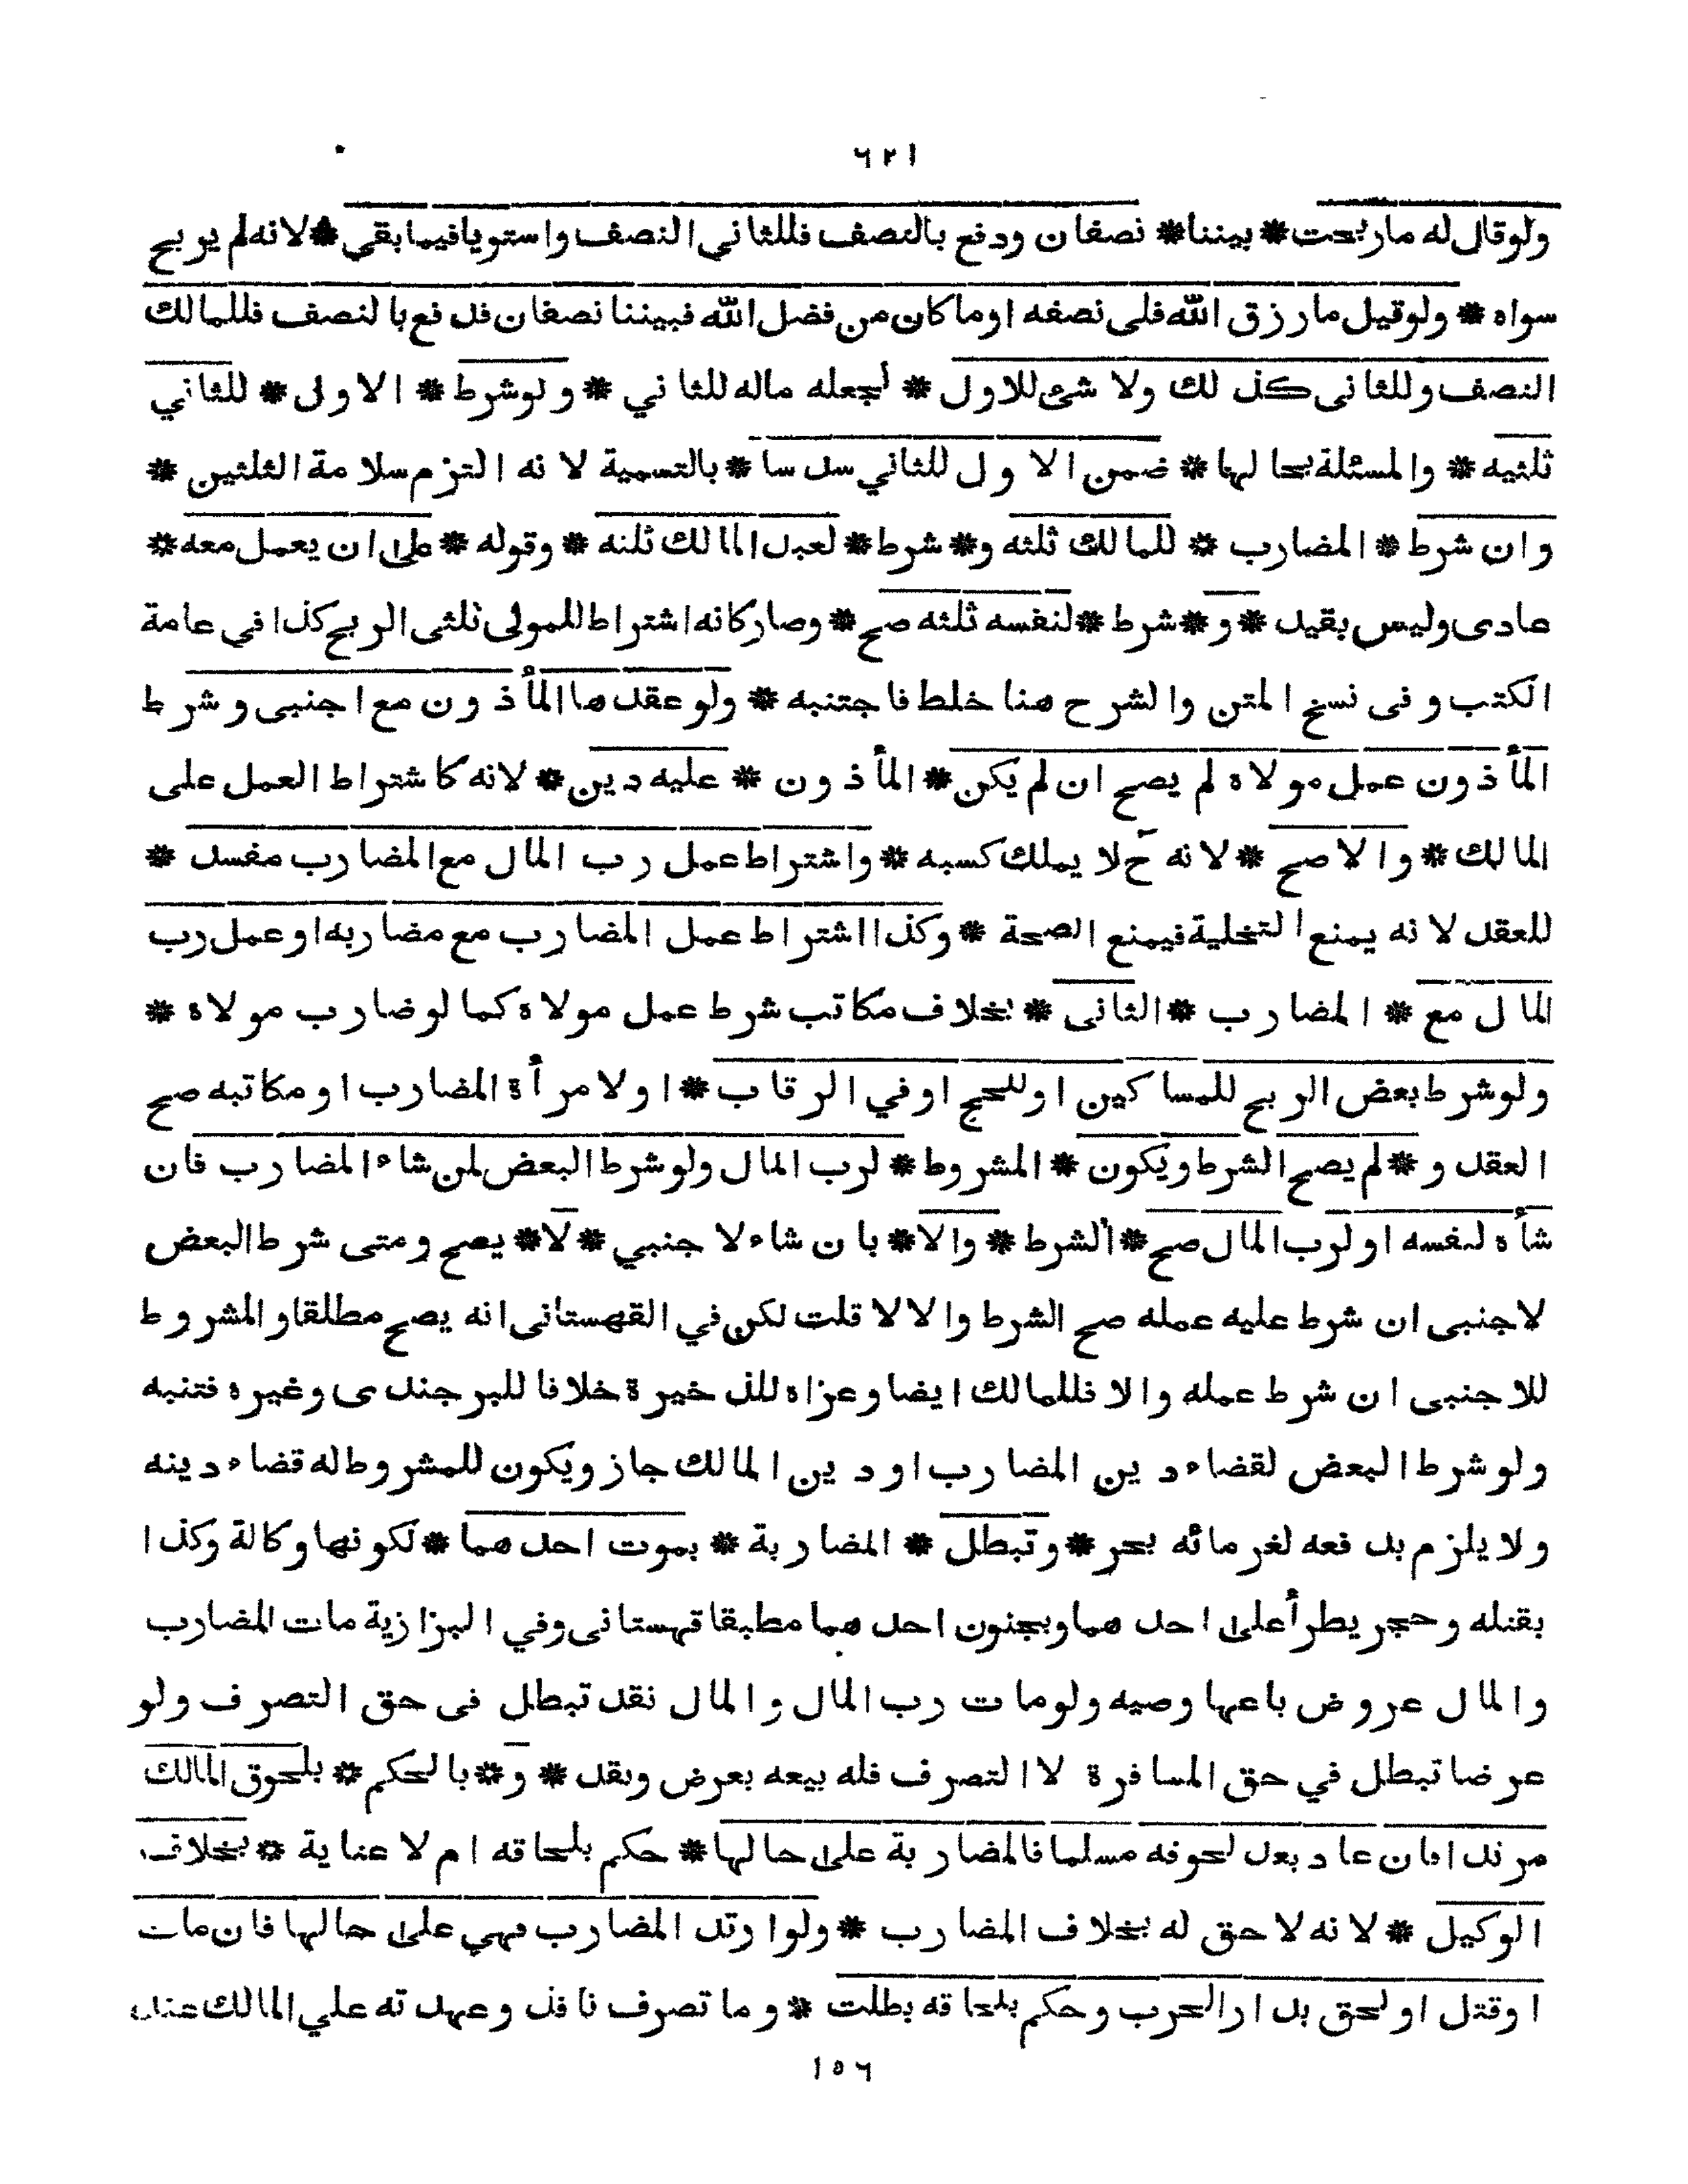 ٦٢١
ولو قال له ما ربحت * بيننا * نصفان ودفع بالنصف فللثاني النصف واستويا فيما بقي * لانه لم يربح
سواه * ولو قيل ما رزق الله فلى نصفه او ما كان من فضل الله فبيننا نصفان فدفع بالنصف فللمالك
النصف وللثانى كذلك ولا شئ للاول * لجعله ماله للثاني * ولو شرط * الاولى * للثاني
ثلثيه * والمسئلة بحالها * ضمن الاول للثاني سدسا * بالتسمية لانه التزم سلامة الثلثين *
وان شرط * المضارب * للمالك ثلثه و* شرط * لعبد المالك ثلثه * وقوله * على ان يعمل معه *
عادى وليس بقيد * و* شرط * لنفسه ثلثه صح * وصار كانه اشتراط للمولى ثلثى الربح كذا في عامة
الكتب و فى نسخ المتن والشرح هنا خلط فاجتنبه * ولو عقدها المأذون مع اجنبى و شرط
المأذون عمل مولاه لم يصح ان لم يكن * المأذون * عليه دين * لانه كاشتراط العمل على
المالك * والا صح * لانه ح لا يملك كسبه * واشتراط عمل رب المال مع المضارب مفسد *
للعقد لانه يمنع التخلية فيمنع الصحة * وكذا اشتراط عمل المضارب مع مضاربه او عمل رب
المال مع * المضارب * الثانى * بخلاف مكاتب شرط عمل مولاه كما لو ضارب مولاه *
ولو شرط بعض الربح للمساكين او للحج او في الرقاب * او لامرأة المضارب او مكاتبه صح
العقد و * لم يصح الشرط ويكون * المشروط * لرب المال ولو شرط البعض لمن شاء المضارب فان
شأه لنفسه او لرب المال صح * الشرط * والا * بان شاء لاجنبي * لا * يصح ومتى شرط البعض
لاجنبى ان شرط عليه عمله صح الشرط والا لا قلت لكن في القهستانى انه يصح مطلقا والمشروط
للاجنبى ان شرط عمله والا فللمالك ايضا وعزاه للذخيرة خلافا للبرجندى وغيره فتنبه
ولو شرط البعض لقضاء دين المضارب او دين المالك جاز ويكون للمشروط له قضاء دينه
ولا يلزم بدفعه لغرمائه بحر * وتبطل * المضاربة * بموت احدهما * لكونها وكالة وكذا
بقتله وحجر يطرأ على احدهما وبجنون احدهما مطبقا قهستانى وفي البزازية مات المضارب
والمال عروض باعها وصيه ولو مات رب المال والمال نقد تبطل فى حق التصرف ولو
عرضا تبطل في حق المسافرة لا التصرف فله بيعه بعرض ونقد * و* بالحكم * بلحوق المالك
مرتدا فان عاد بعد لحوقه مسلما فالمضاربة على حالها * حكم بلحاقه ام لا عناية * بخلاف
الوكيل * لانه لا حق له بخلاف المضارب * ولو ارتد المضارب فهي على حالها فان مات
او قتل او لحق بدار الحرب وحكم بلحاقه بطلت * وما تصرف نافذ وعهدته علي المالك عند
١٥٦